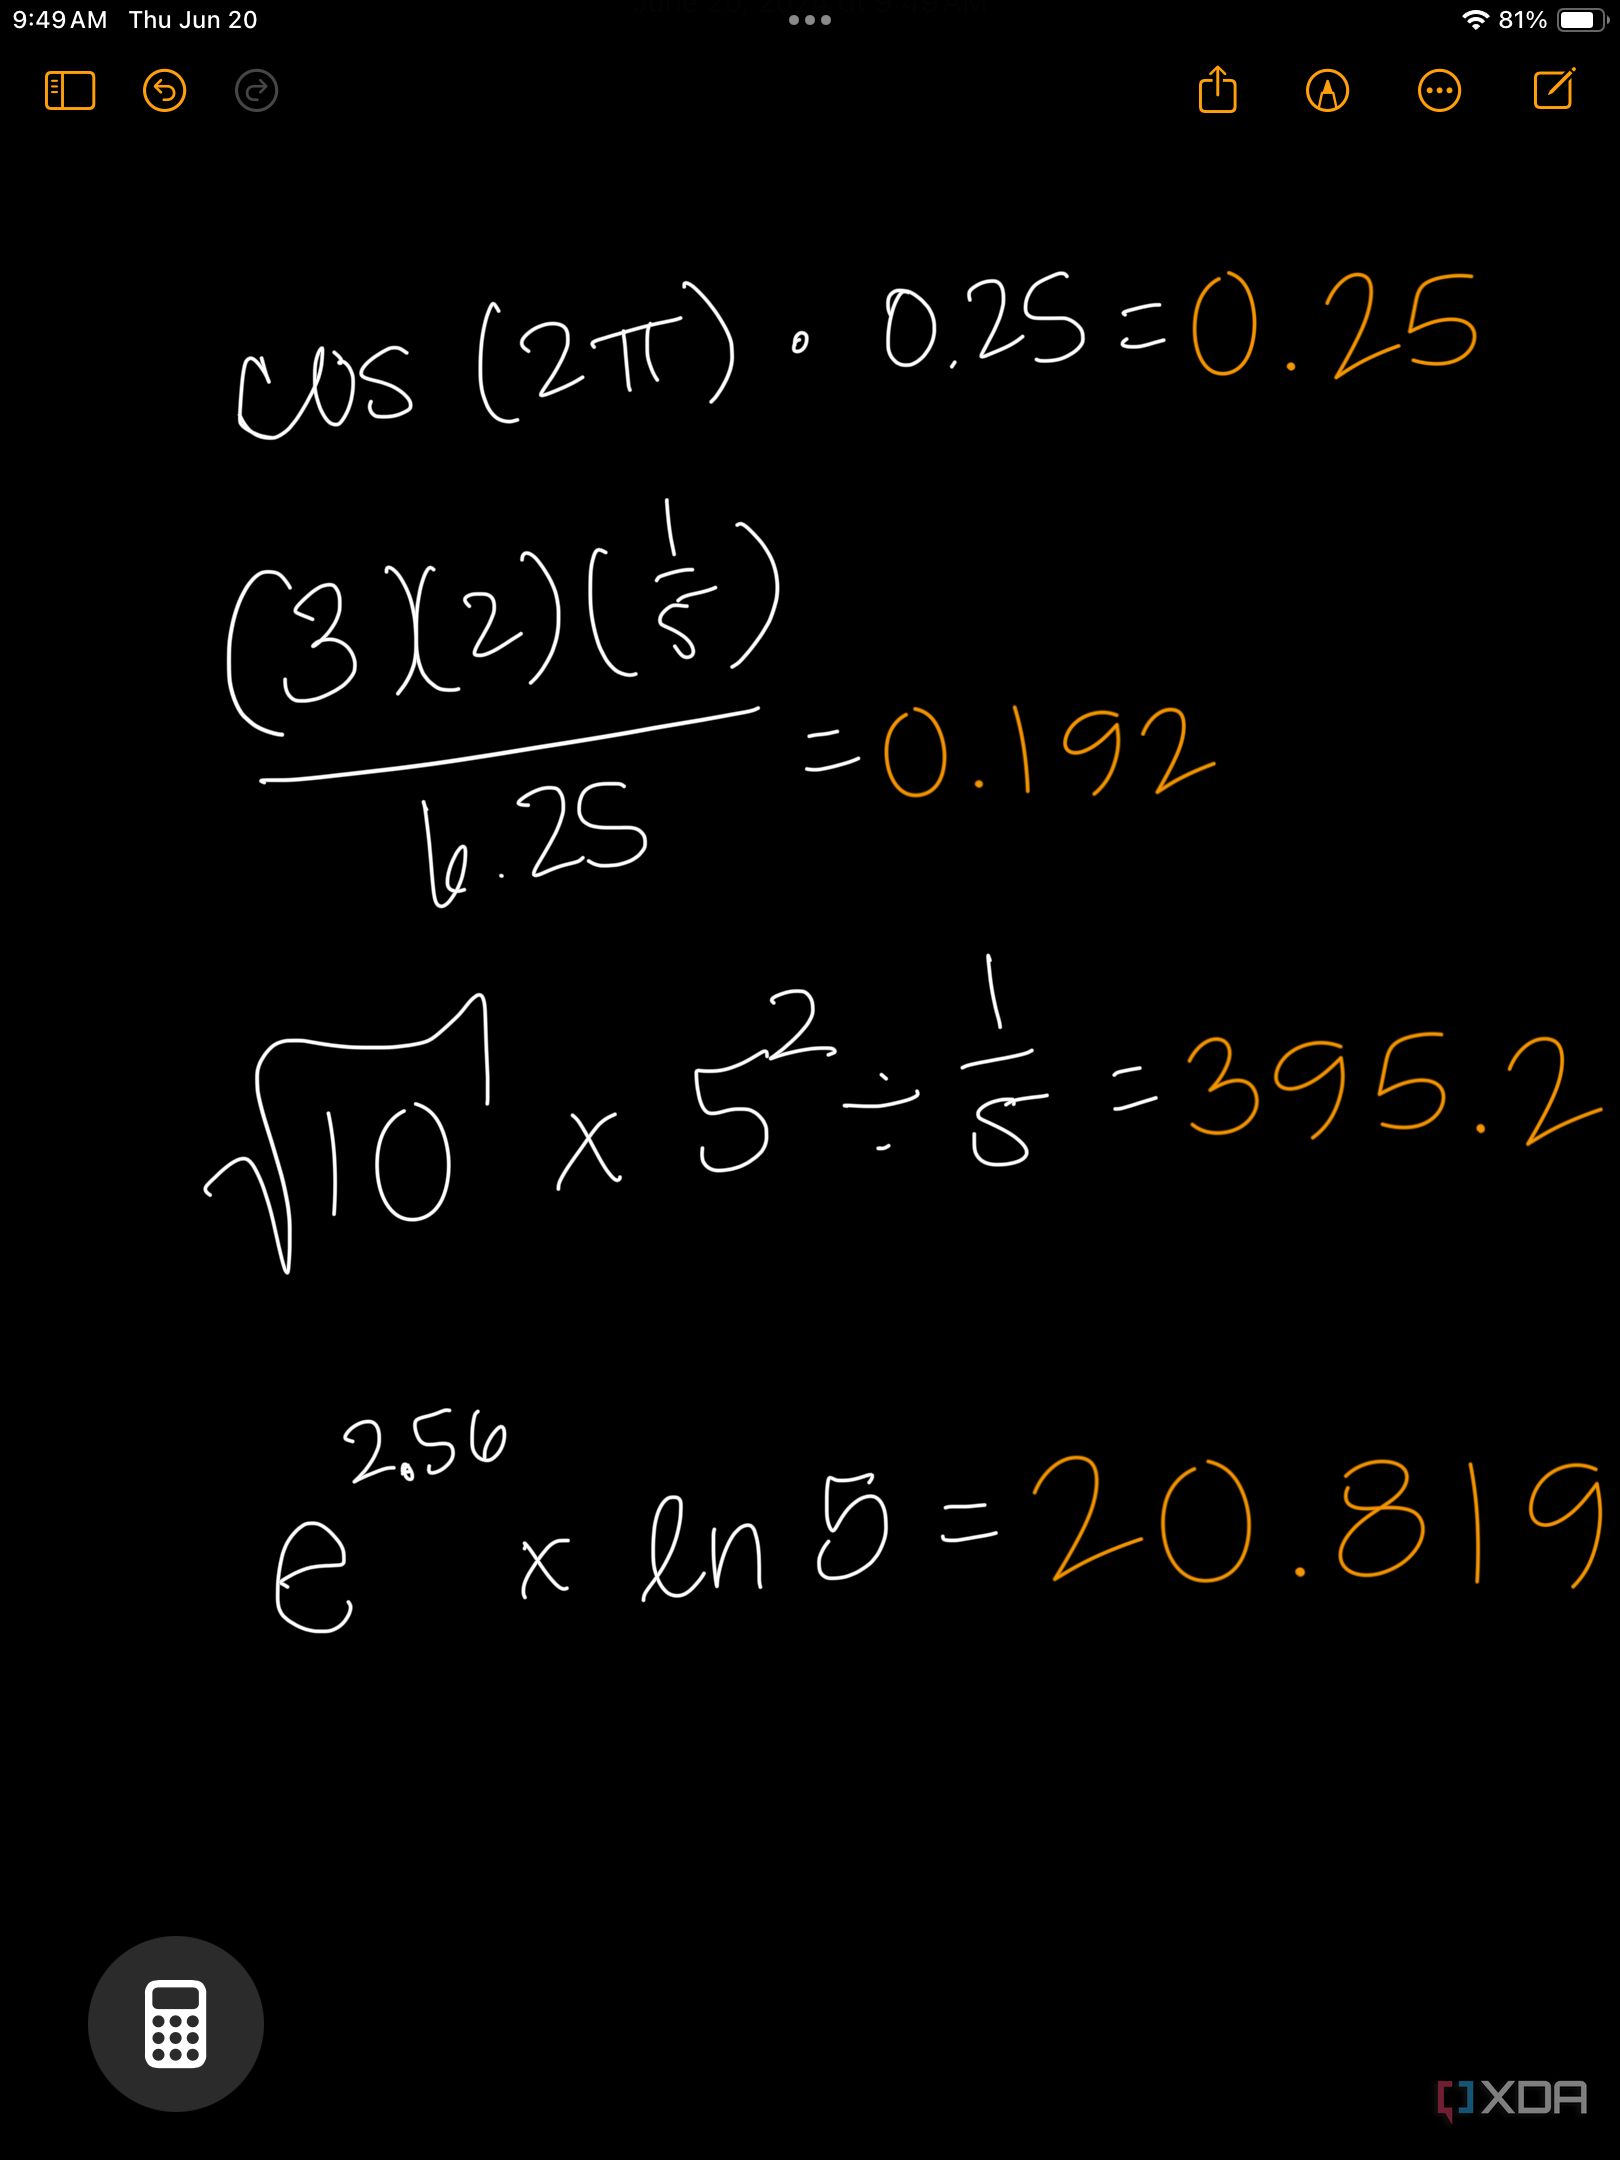 9:49 AM Thu Jun 20 81%
cos (2π) · 0.25 = 0.25
(3)(2)(1/5)
6.25
= 0.192
√10 x 5² ÷ 1/5 = 395.2
e^2.56 x ln 5 = 20.819
XDA